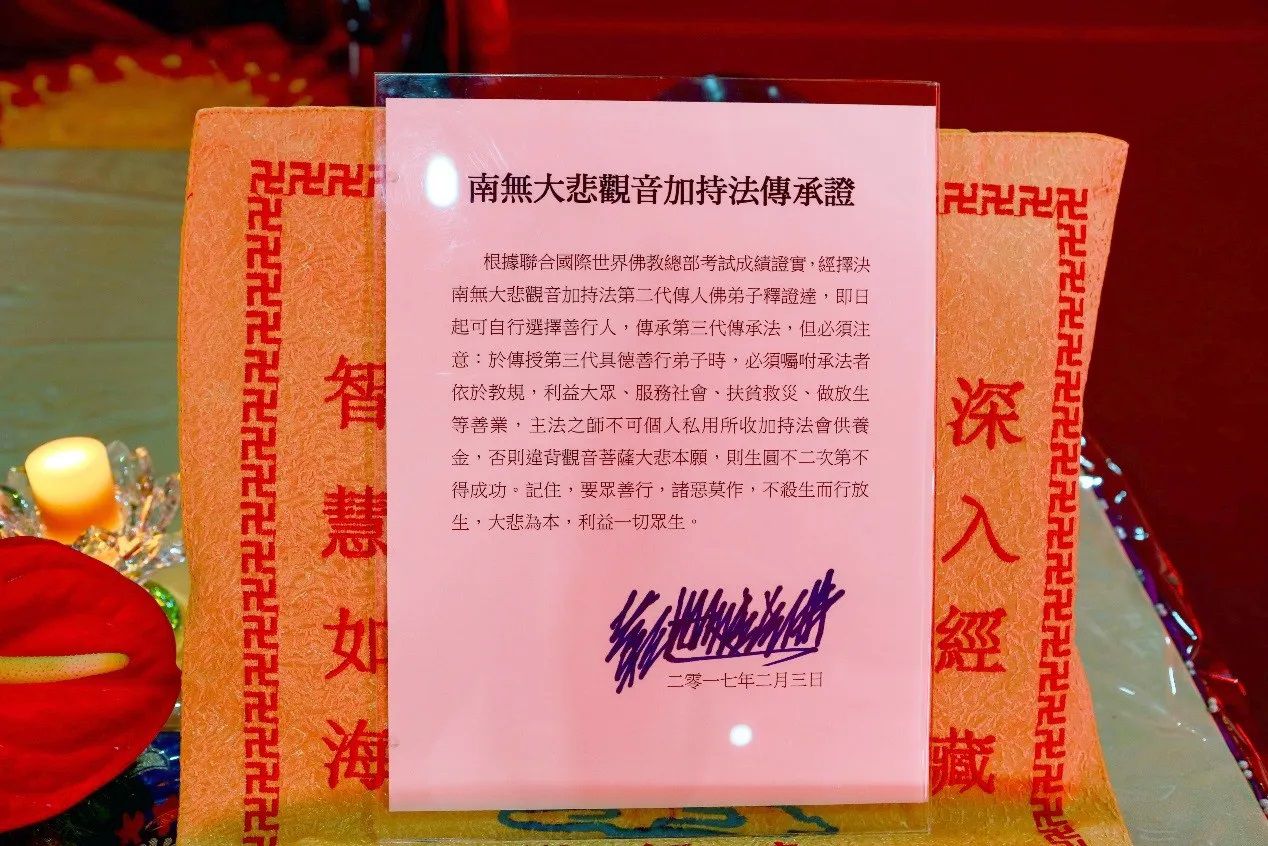 南無大悲觀音加持法傳承證
根據聯合國際世界佛教總部考試成績證實，經擇決
南無大悲觀音加持法第二代傳人佛弟子釋證達，即日
起可自行選擇善行人，傳承第三代傳承法，但必須注
意：於傳授第三代具德善行弟子時，必須囑咐承法者
依於教規，利益大眾、服務社會、扶貧救災、做放生
等善業，主法之師不可個人私用所收加持法會供養
金，否則違背觀音菩薩大悲本願，則生圓不二次第不
得成功。記住，要眾善行，諸惡莫作，不殺生而行放
生，大悲為本，利益一切眾生。
二零一七年二月三日
深入經藏
智慧如海